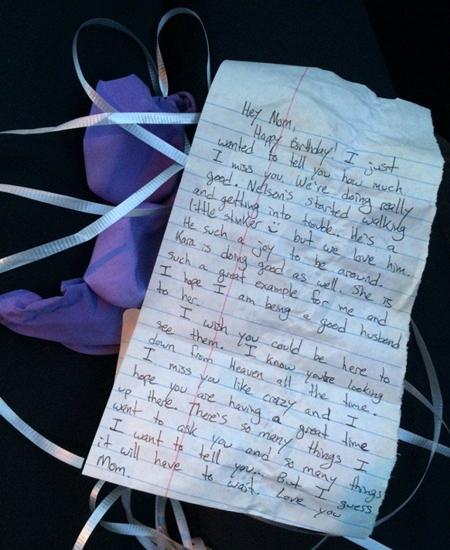 Hey Mom,
Happy Birthday! I just
wanted to tell you how much
I miss you. We're doing really
good. Nelson's started walking
and getting into trouble. He's a
little stinker :) but we love him.
He such a joy to be around.
Kara is doing good as well. She is
such a great example for me and
I hope I am being a good husband
to her.
I wish you could be here to
see them. I know you're looking
down from Heaven all the time.
I miss you like crazy and I
hope you are having a great time
up there. There's so many things I
want to ask you and so many things
I want to tell you... But I guess
it will have to wait. Love you
Mom.